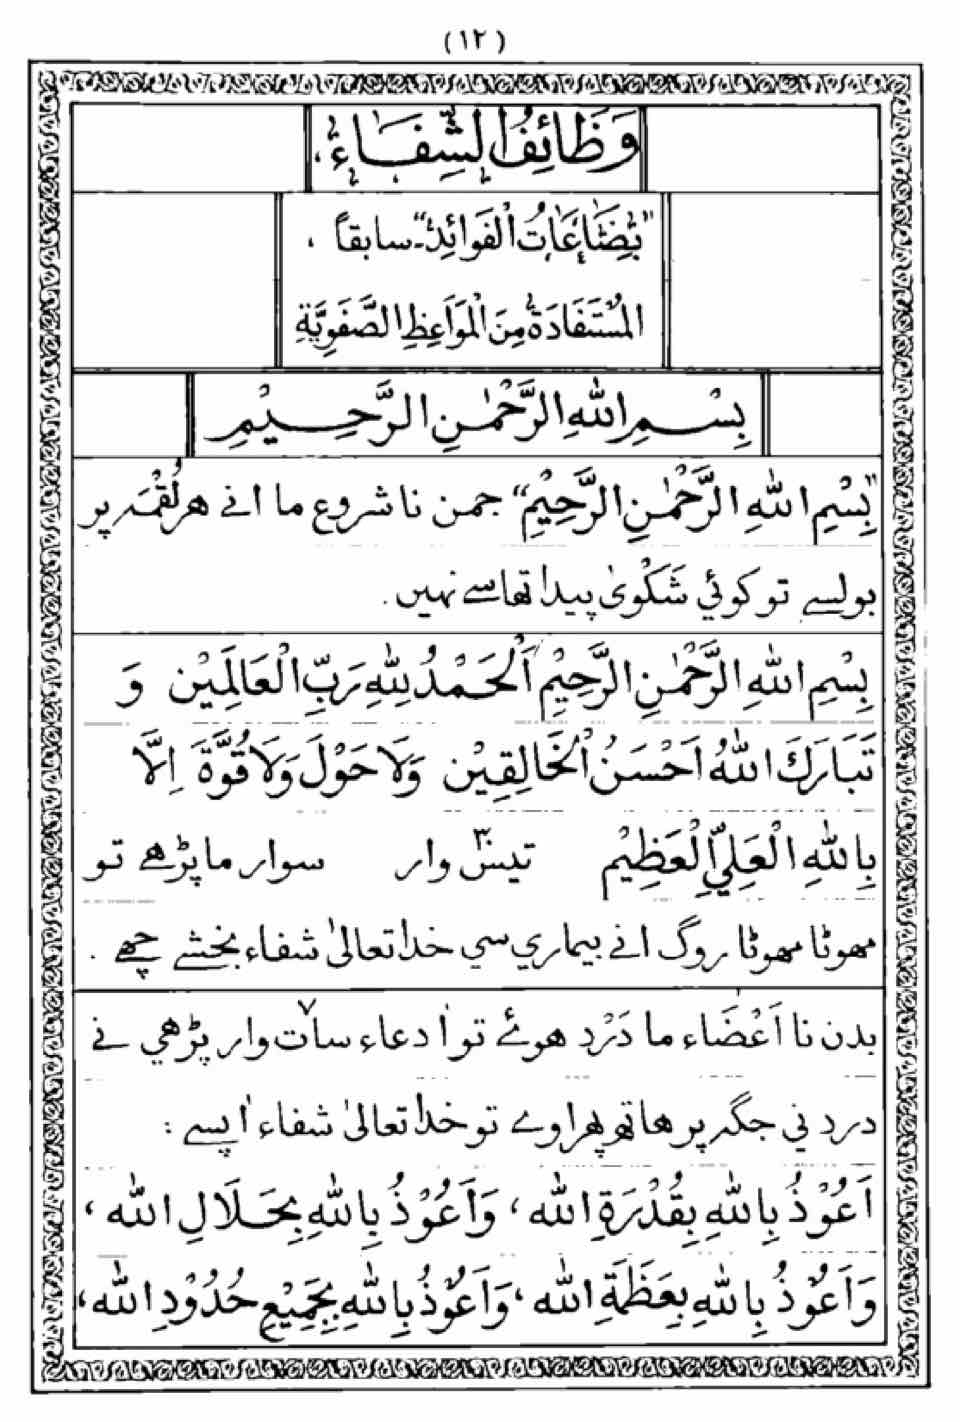 (١٢)
وَظَائِفُ الشِّفَاءِ،
"بِضَاعَاتُ الْفَوَائِدِ"۔ سابقاً ،
الْمُسْتَفَادَةُ مِنَ الْمَوَاعِظِ الصَّفَوِيَّةِ
بِسْمِ اللهِ الرَّحْمٰنِ الرَّحِيْمِ
"بِسْمِ اللهِ الرَّحْمٰنِ الرَّحِيْمِ" جمن نا شروع ما انے هر لُقْمَہ پر
بولسے تو کوئي شَکْویٰ پیدا تھاسے نہیں.
بِسْمِ اللهِ الرَّحْمٰنِ الرَّحِيْمِ اَلْحَمْدُ لِلّٰهِ رَبِّ الْعَالَمِيْن وَ
تَبَارَكَ اللهُ اَحْسَنُ الْخَالِقِيْن وَلَا حَوْلَ وَلَا قُوَّةَ اِلَّا
بِاللهِ الْعَلِيِّ الْعَظِيْم تیس۳۰ وار سوار ما پڑھے تو
مھوٹا مھوٹا روگ انے بیماري سي خدا تعالیٰ شفاء بخشے چھے .
بدن نا اَعْضَاء ما دَرْد هوئے تو اٰ دعاء سات۷ وار پڑھي نے
درد ني جگہ پر هاتھ پھراوے تو خدا تعالیٰ شفاء اٰپسے :
اَعُوْذُ بِاللهِ بِقُدْرَةِ الله، وَاَعُوْذُ بِاللهِ بِجَلَالِ الله،
وَاَعُوْذُ بِاللهِ بِعَظَمَةِ الله، وَاَعُوْذُ بِاللهِ بِجَمِيْعِ حُدُوْدِ الله،